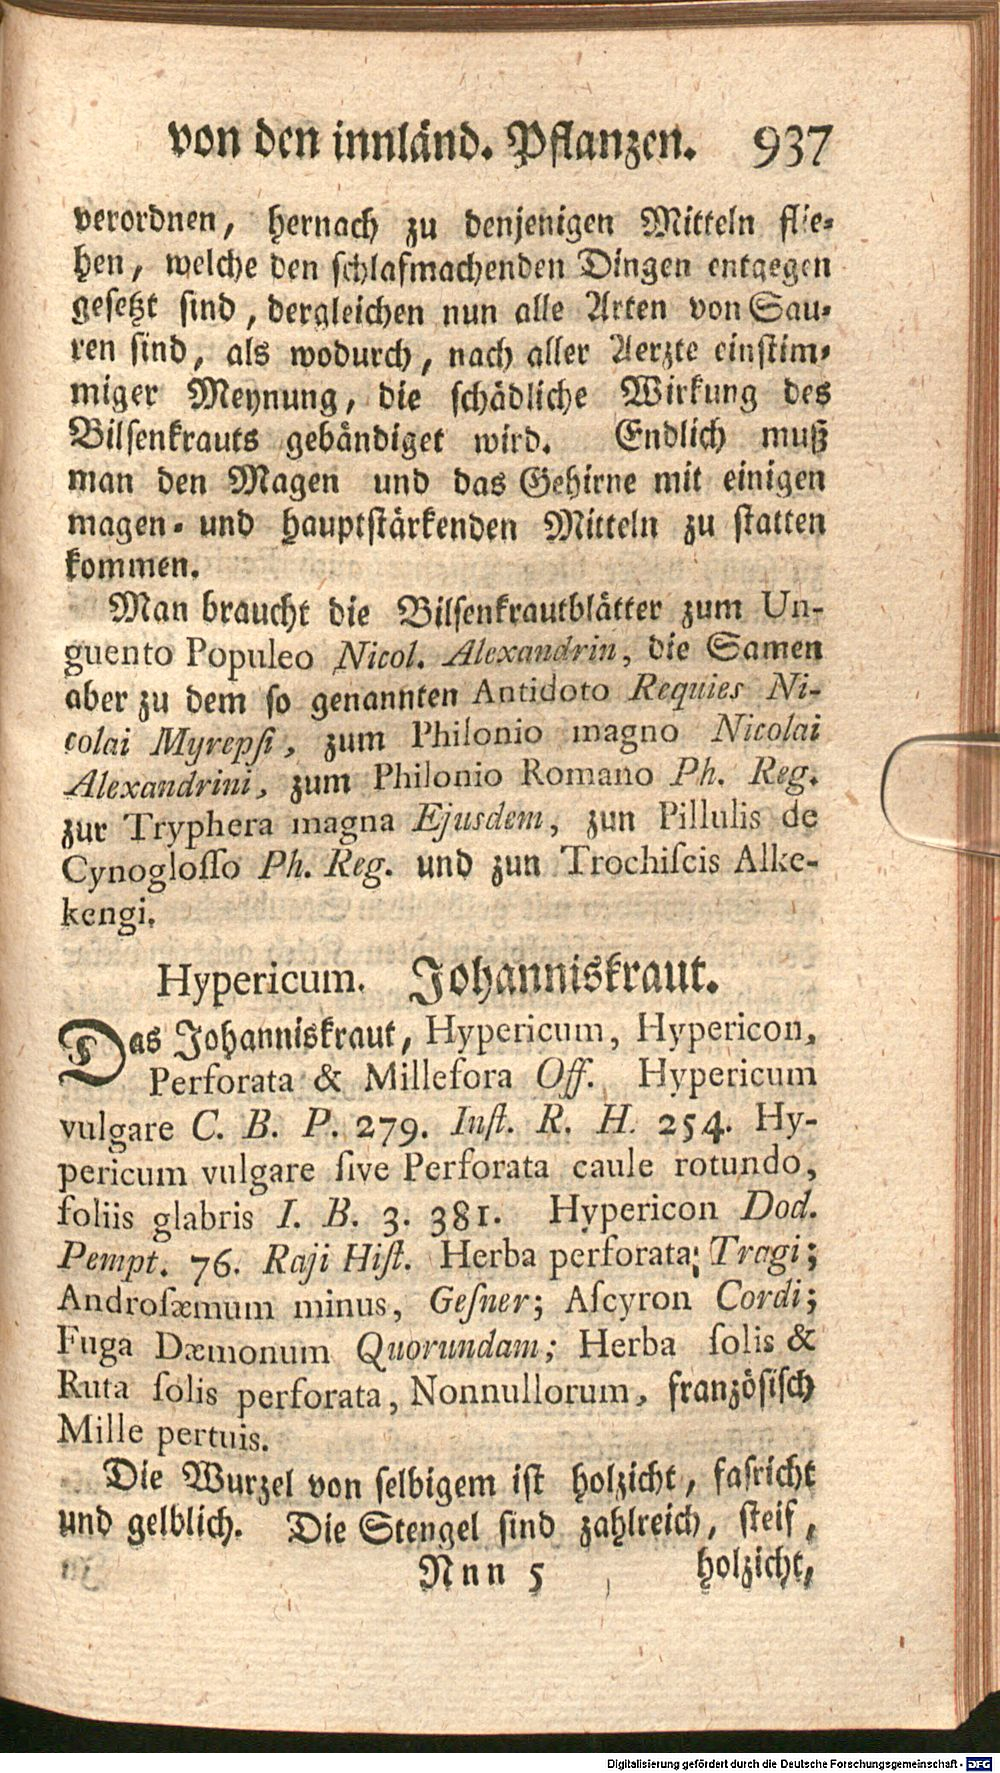 von den innländ. Pflanzen. 937
verordnen, hernach zu denjenigen Mitteln flie-
hen, welche den schlafmachenden Dingen entgegen
gesetzt sind, dergleichen nun alle Arten von Sau-
ren sind, als wodurch, nach aller Aerzte einstim-
miger Meynung, die schädliche Wirkung des
Bilsenkrauts gebändiget wird. Endlich muß
man den Magen und das Gehirne mit einigen
magen- und hauptstärkenden Mitteln zu statten
kommen.
Man braucht die Bilsenkrautblätter zum Un-
guento Populeo Nicol. Alexandrin, die Samen
aber zu dem so genannten Antidoto Requies Ni-
colai Myrepſi, zum Philonio magno Nicolai
Alexandrini, zum Philonio Romano Ph. Reg.
zur Tryphera magna Ejusdem, zun Pillulis de
Cynogloſſo Ph. Reg. und zun Trochiſcis Alke-
kengi.
Hypericum. Johanniskraut.
Das Johanniskraut, Hypericum, Hypericon,
Perforata & Millefora Off. Hypericum
vulgare C. B. P. 279. Inſt. R. H. 254. Hy-
pericum vulgare ſive Perforata caule rotundo,
foliis glabris I. B. 3. 381. Hypericon Dod.
Pempt. 76. Raji Hiſt. Herba perforata; Tragi;
Androſæmum minus, Geſner; Aſcyron Cordi;
Fuga Dæmonum Quorundam; Herba ſolis &
Ruta ſolis perforata, Nonnullorum, französisch
Mille pertuis.
Die Wurzel von selbigem ist holzicht, fasricht
und gelblich. Die Stengel sind zahlreich, steif,
Nnn 5 holzicht,
Digitalisierung gefördert durch die Deutsche Forschungsgemeinschaft - DFG